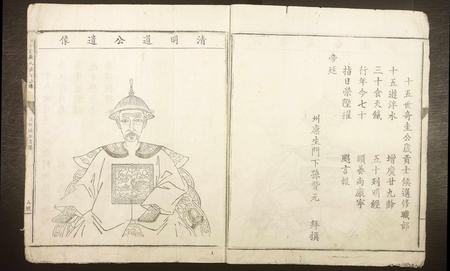 十五世奇圭公歲貢士候選修職郎
十五遊泮水 增廣廿九餘
三十食天餼 五十列明經
行年今七十 頤養尚康寧
指日榮陞擢 颺言報
帝廷
州廩生門下孫 元 拜撰
清明道公遺像